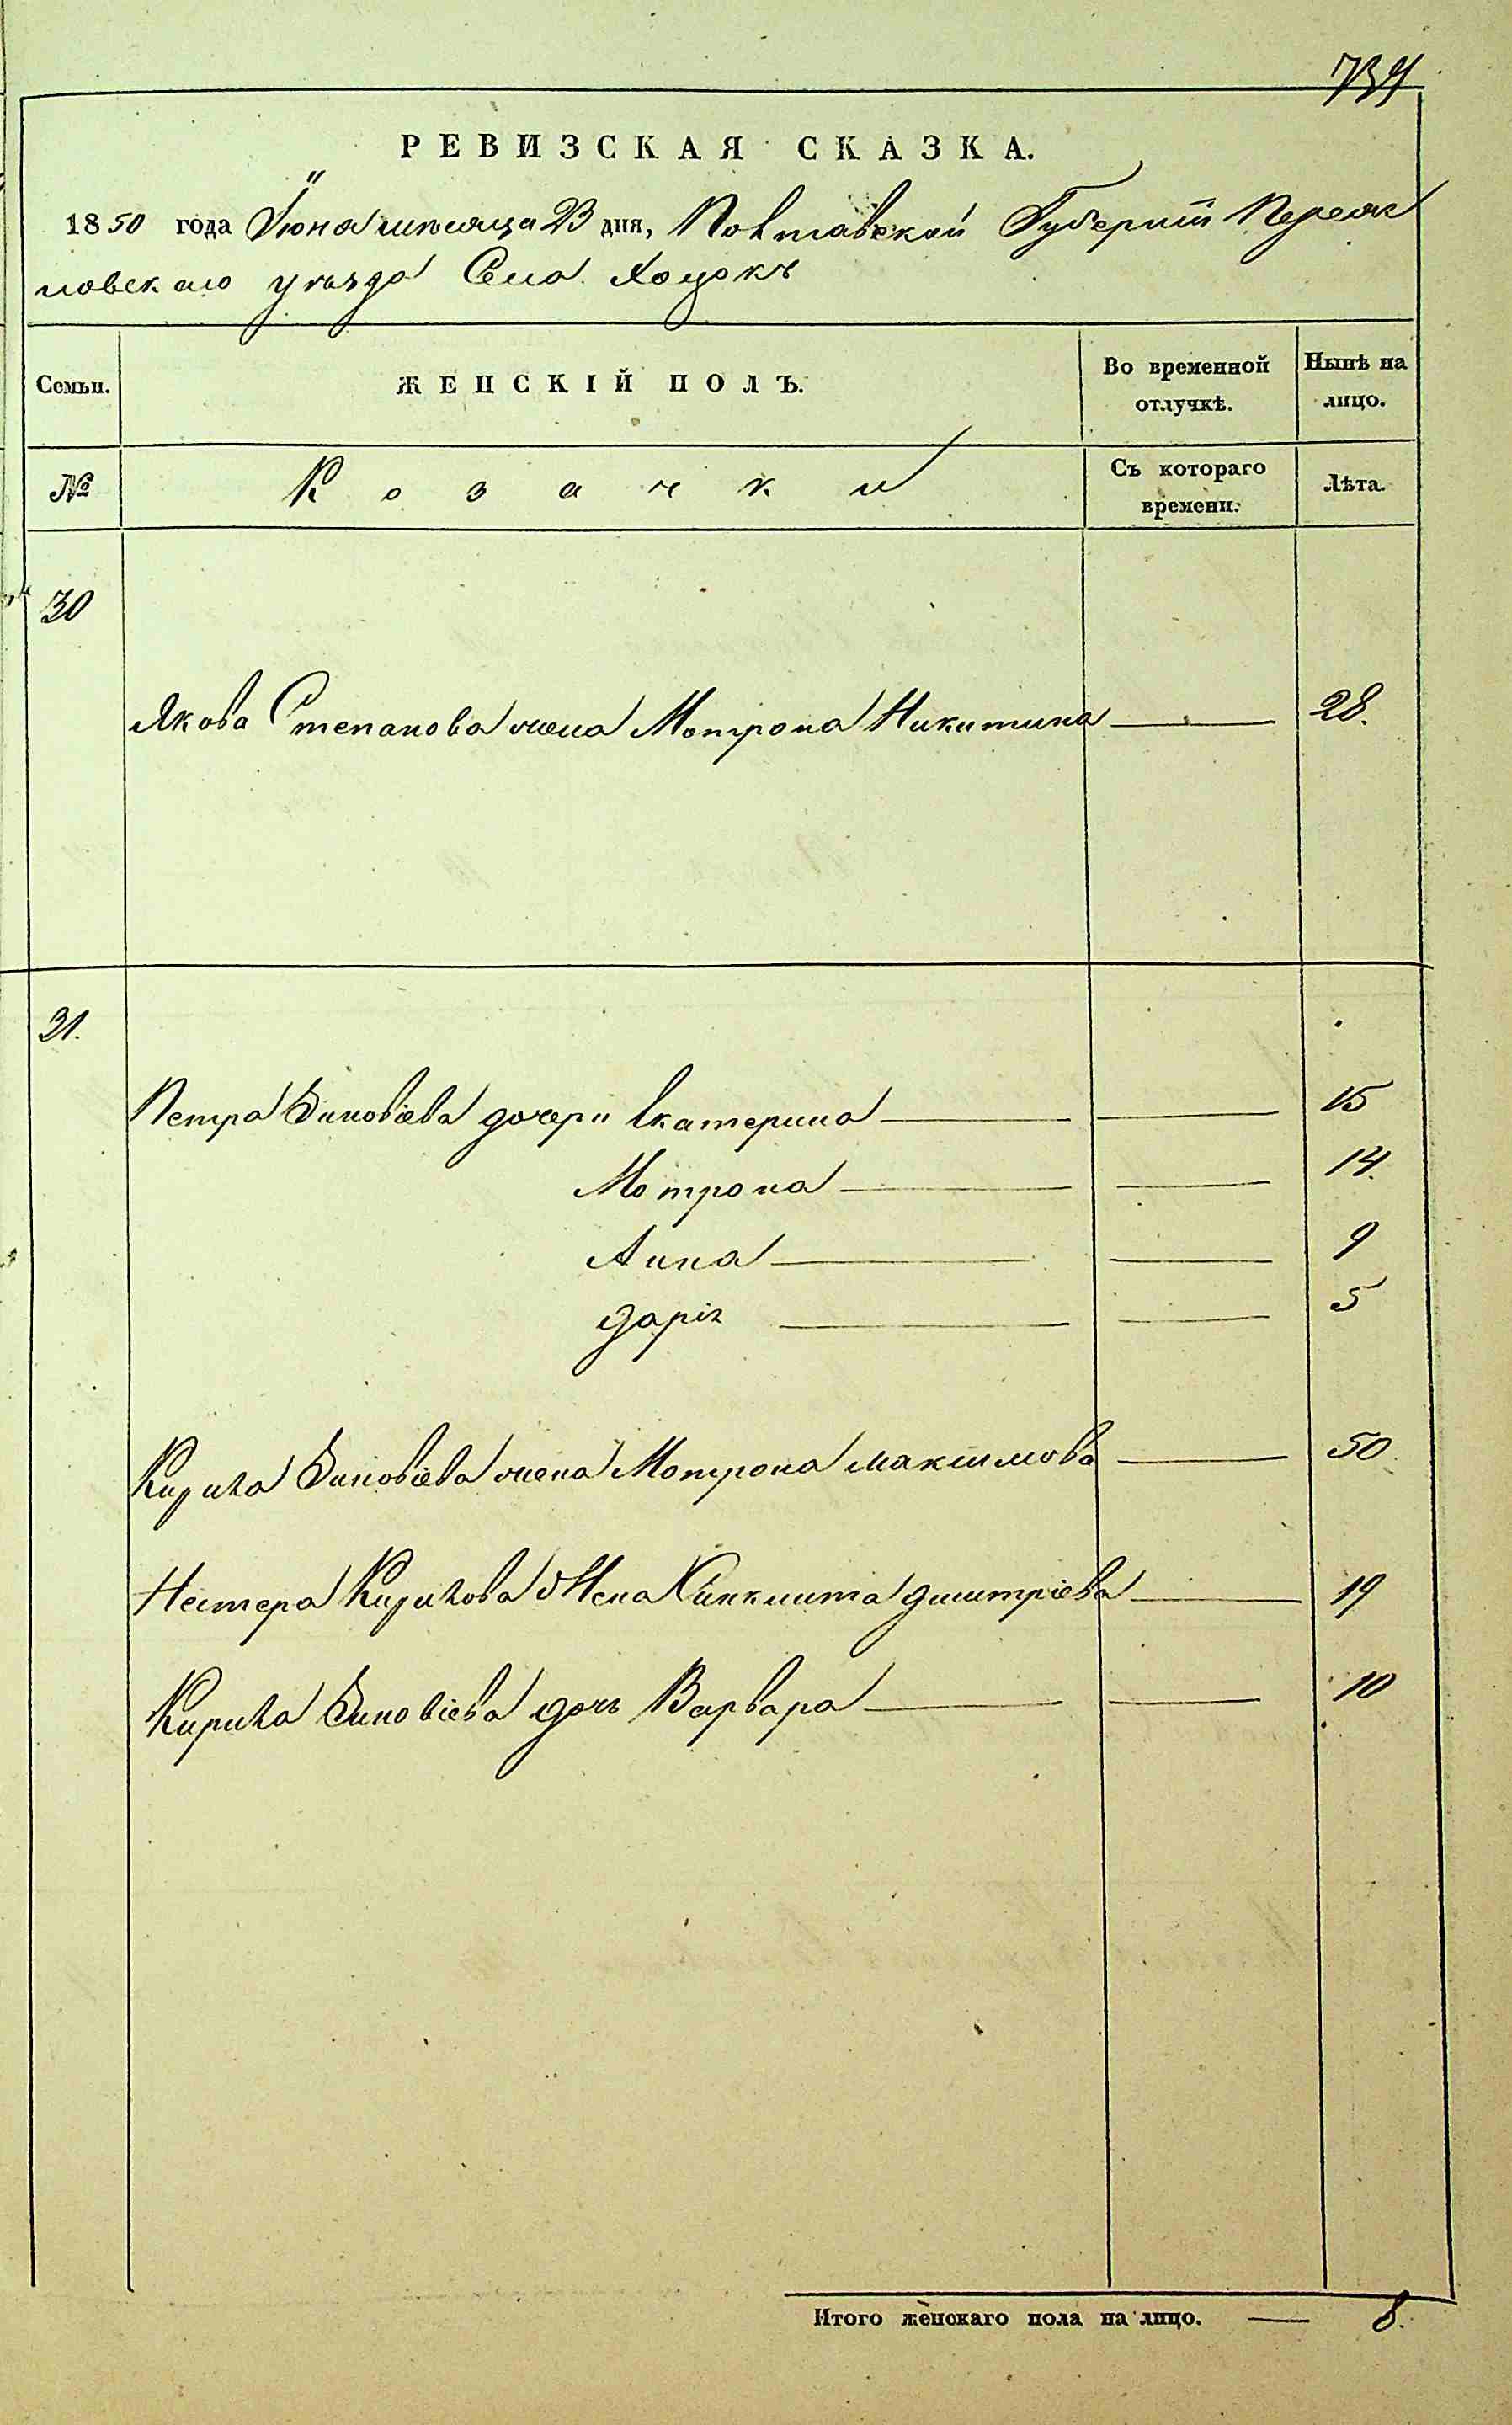 739
РЕВИЗСКАЯ СКАЗКА.
1850 года Іюня мѣсяца 23 дня, Полтавской Губерніи Переяс
ловскаго уѣзда Села Хоцокъ
Семьи.
ЖЕНСКІЙ ПОЛЪ.
Во временной отлучкѣ.
Нынѣ на лицо.
№
Козачки
Съ котораго времени.
Лѣта.
30
Якова Степанова жена Мотрона Никитина — 28.
31.
Петра Зиновіева дочери Екатерина — — 15
Мотрона — — 14.
Анна — — 9
Дарія — — 5
Кирила Зиновіева жена Мотрона Максимова — 50
Нестера Кирилова Жена Синклита Дмитріева — 19
Кирила Зиновіева дочь Варвара — — 10
Итого женскаго пола на лицо. — 8.